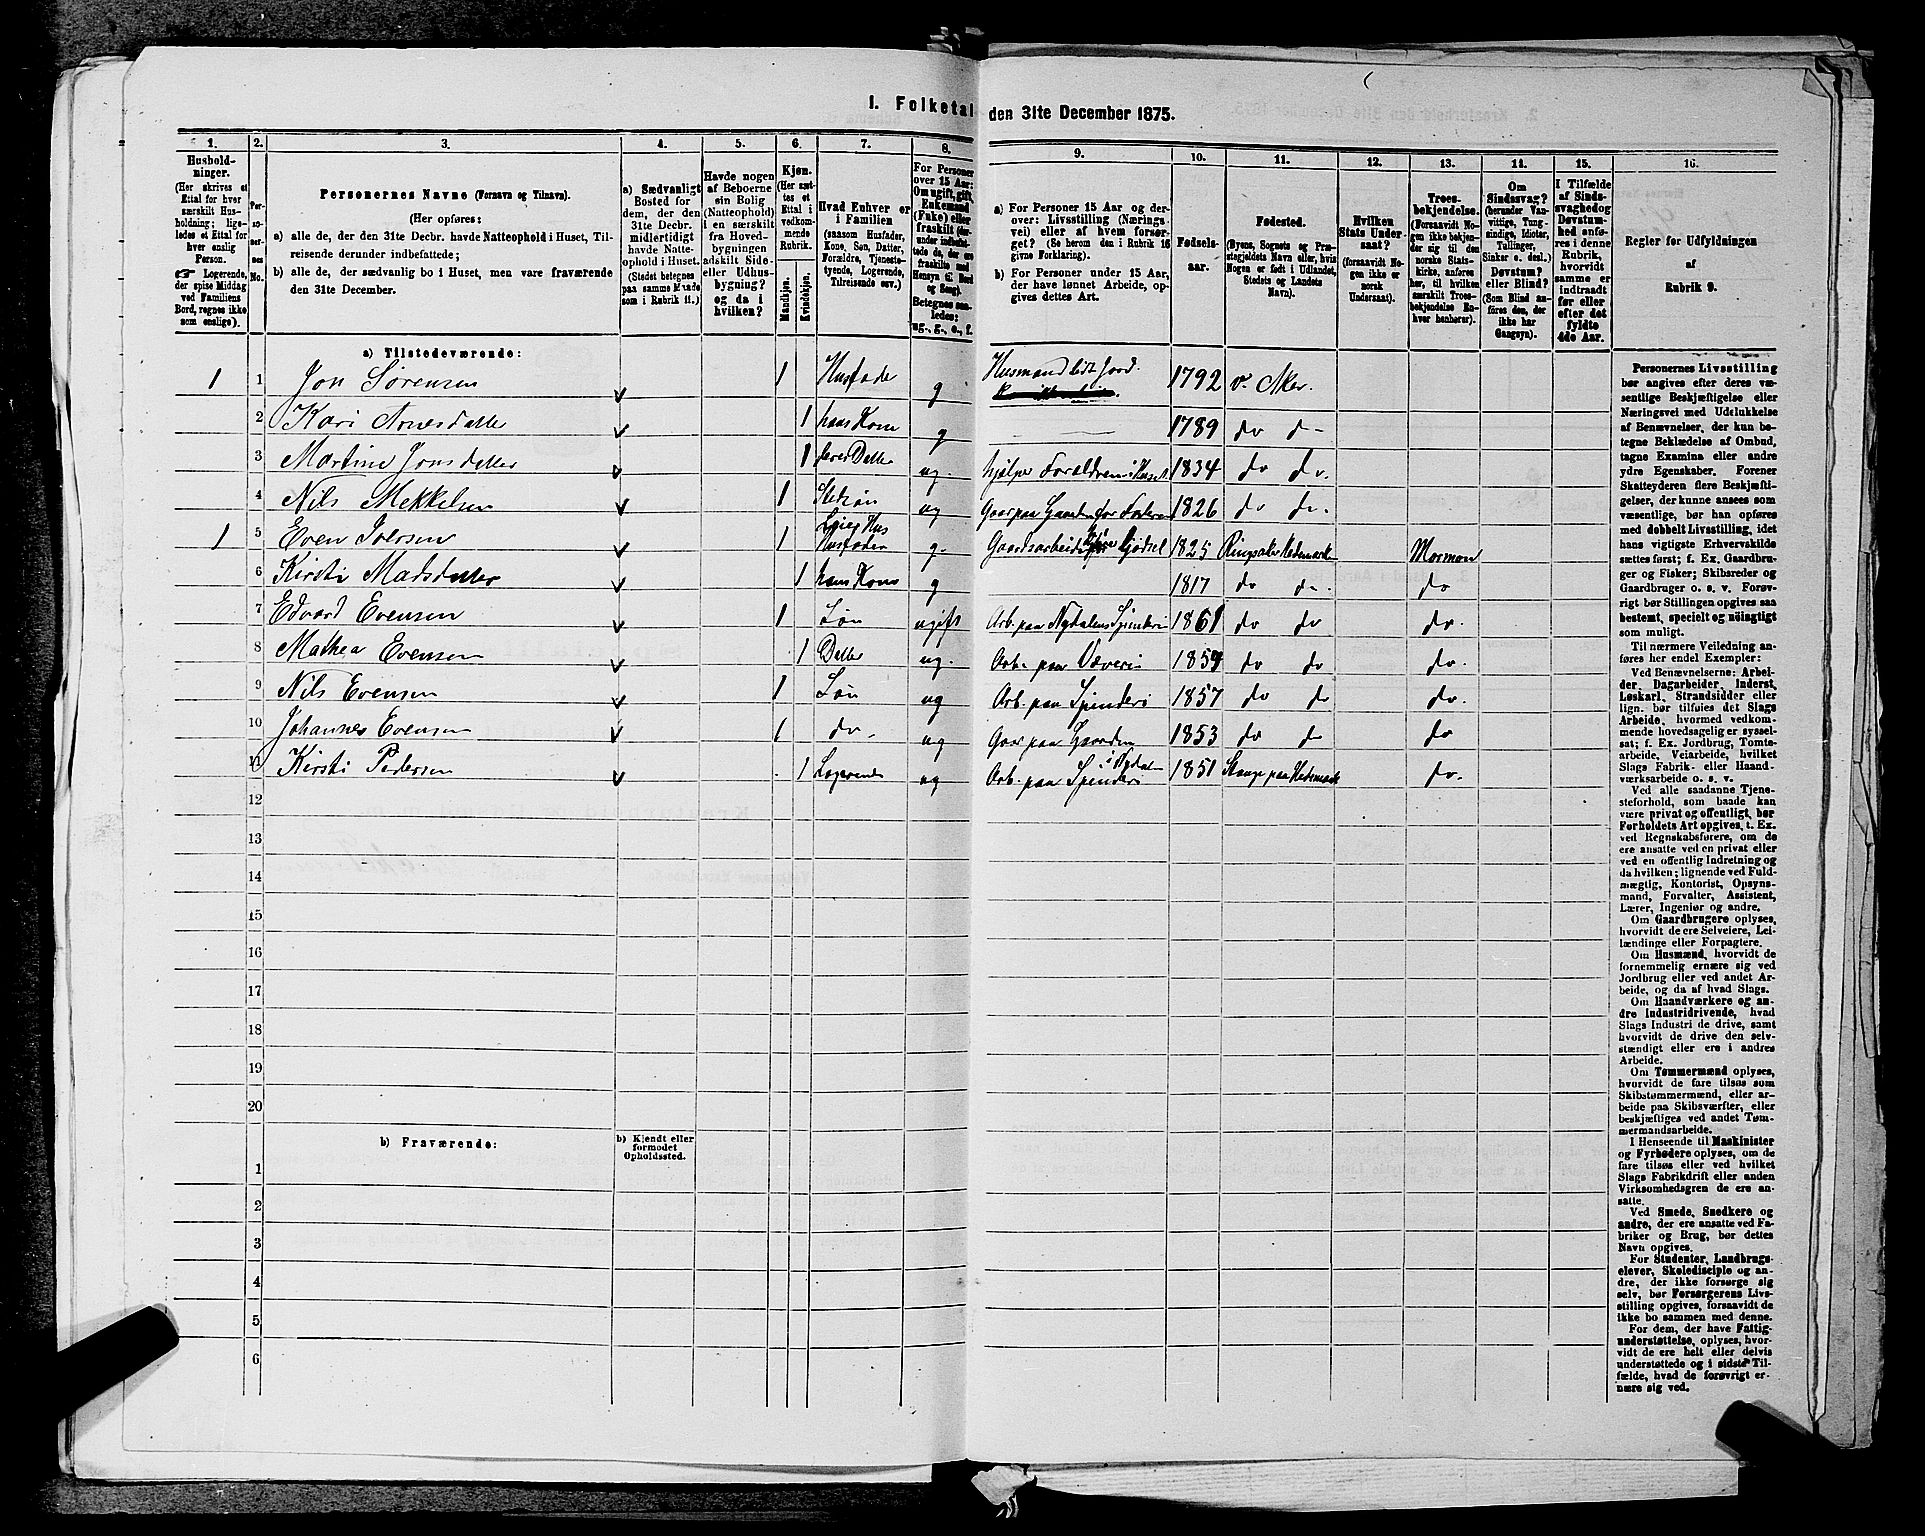 1. Folketal den 31te December 1875.
1.
2.
3.
4.
5.
6.
7.
8.
9.
10.
11.
12.
13.
14.
15.
16.
Husholdninger.
(Her skrives et
Ettal for hver
særskilt Husholdning;
ligeledes et Ettal for
hver enslig
Person.
☞ Logerende,
der spise Middag
ved Familiens
Bord, regnes ikke
som enslige).
Personernes No.
Personernes Navne (Fornavn og Tilnavn).
(Her opføres:
a) alle de, der den 31te Decbr. havde Natteophold i Huset, Tilreisende
derunder indbefattede;
b) alle de, der sædvanlig bo i Huset, men vare fraværende
den 31te December.
a) Sædvanligt
Bosted for
dem, der den
31te Decbr.
midlertidigt
havde Natteophold
i Huset.
(Stedet betegnes
paa samme Maade
som i Rubrik 11.)
Havde nogen
af Beboerne
sin Bolig
(Natteophold)
i en særskilt
fra Hovedbygningen
adskilt Side-
eller Udhusbygning?
og da i
hvilken?
Kjøn.
(Her sættes
et
Ettal i
vedkommende
Rubrik.
Mandkjøn.
Kvindekjøn.
Hvad Enhver er
i Familien
(saasom Husfader,
Kone, Søn, Datter,
Forældre, Tjenestetyende,
Logerende,
Tilreisende osv.)
For Personer
over 15 Aar:
Om ugift, gift,
Enkemand
(Enke) eller
fraskilt
Betegnes saaledes:
ug., g., e., f.
a) For Personer 15 Aar og derover:
Livsstilling (Næringsvei)
eller af hvem forsørget?
(Se herom den i Rubrik 16
givne Forklaring).
b) For Personer under 15 Aar,
der have lønnet Arbeide, opgives
dettes Art.
Fødselsaar.
Fødested.
(Byens, Sognets og Præstegjeldets
Navn eller, hvis
Nogen er født i Udlandet,
Stedets og Landets
Navn).
Hvilken
Stats Undersaat?
(forsaavidt Nogen
ikke er
norsk
Undersaat).
Troesbekjendelse.
(Forsaavidt Nogen
ikke bekjender
sig til den
norske Statskirke,
anføres
her, til hvilken
særskilt Troesbekjendelse
Enhver
henhører).
Om
Sindssvag?
(herunder Vanvittige,
Tungsindige,
Idioter,
Tullinger,
Sinker o. desl.)
Døvstum?
eller Blind?
(Som Blind anføres
den, der
ikke har
Gangsyn).
I Tilfælde
af Sindssvaghed
og
Døvstumhed
anføres
i denne
Rubrik,
hvorvidt
samme er
indtraadt
før eller
efter det
fyldte
4de Aar.
Regler for Udfyldningen
af
Rubrik 9.
a) Tilstedeværende:
1 1 Jon Sørensen 1 Husfader g Husmand lidt Jord. 1792 v. Aker.
2 Kari Arnesdatter 1 hans Kone g 1789 do do
3 Martine Jonsdatter 1 deres Datter ug. hjælper Forældrene i Huset 1834 do do.
4 Nils Mekkelsen 1 ug Gaar paa Gaarden for Foderen 1826 do do.
1 5 Even Iversen 1 Husfader g. Gaardsarbeider Gjødsel 1825 Ringsaker Hedemarke Mormon
6 Kirsti Madsdatter 1 hans Kone g 1817 do do. do
7 Edvard Evensen 1 Søn ugift Arb. paa Nydalens Spinderi 1861 do do do.
8 Mathea Evensen 1 Datter ug. Arb. paa Væveri 1859 do do do.
9 Nils Evensen 1 Søn ug Arb. paa Spinderi 1857 do do do.
10 Johannes Evensen 1 do. ug Gaar paa Gaarden 1853 do do do
11 Kirsti Pedersen 1 Logerende ug Arb. paa Spinderi i Nydalen 1851 Stange paa Hedemark do.
12
13
14
15
16
17
18
19
20
b) Fraværende:
b) Kjendt eller
formodet
Opholdssted.
1
2
3
4
5
6
Personernes Livsstilling
bør angives efter deres væsentlige
Beskjæftigelse eller
Næringsvei med Udelukkelse
af Benævnelser, der kun betegne
Beklædelse af Ombud,
tagne Examina eller andre
ydre Egenskaber. Forener
Skatteyderen flere Beskjæftigelser,
der kunne ansees som
væsentlige, bør han opføres
med dobbelt Livsstilling, idet
hans vigtigste Erhvervskilde
sættes først; f. Ex. Gaardbruger
og Fisker; Skibsreder og
Gaardbruger o. s. v. Forøvrigt
bør Stillingen opgives saa
bestemt, specielt og nøiagtigt
som muligt.
Til nærmere Veiledning anføres
her endel Exempler:
Ved Benævnelserne: Arbeider,
Dagarbeider, Inderst,
Løskarl, Strandsidder eller
lign. bør tilføies det Slags
Arbeide, hvormed vedkommende
hovedsagelig er sysselsat;
f. Ex. Jordbrug, Tomtearbeide,
Veiarbeide, hvilket
Slags Fabrik- eller Haandværksarbeide
o. s. v.
Ved alle saadanne Tjenesteforhold,
som baade kan
være privat og offentligt, bør
Forholdets Art opgives, t. Ex.
ved Regnskabsførere, om de
ere ansatte ved en privat eller
ved en offentlig Indretning og
da hvilken; lignende ved Fuldmægtig,
Kontorist, Opsynsmand,
Forvalter, Assistent,
Lærer, Ingeniør og andre.
Om Gaardbrugere oplyses,
hvorvidt de ere Selveiere, Leilændinge
eller Forpagtere.
Om Husmænd, hvorvidt de
fornemmelig ernære sig ved
Jordbrug eller ved andet Arbeide,
og da af hvad Slags.
Om Haandværkere og andre
Industridrivende, hvad
Slags Industri de drive, samt
hvorvidt de drive den selvstændigt
eller ere i andres
Arbeide.
Om Tømmermænd oplyses,
hvorvidt de fare tilsøs som
Skibstømmermænd, eller arbeide
paa Skibsværfter, eller
beskjæftiges ved andet Tømmermandsarbeide.
I Henseende til Maskinister
og Fyrbødere oplyses, om de
fare tilsøs eller ved hvilket
Slags Fabrikdrift eller anden
Virksomhedsgren de ere ansatte.
Ved Smede, Snedkere og
andre, der ere ansatte ved Fabriker
og Brug, bør dettes
Navn opgives.
For Studenter, Landbrugselever,
Skoledisciple og andre,
der ikke forsørge sig
selv, bør Forsørgerens Livsstilling
opgives, forsaavidt de
ikke bo sammen med denne.
For dem, der have Fattigunderstøttelse,
oplyses, hvorvidt
de ere helt eller delvis
understøttede og i sidste Tilfælde,
hvad de forøvrigt ernære
sig ved.